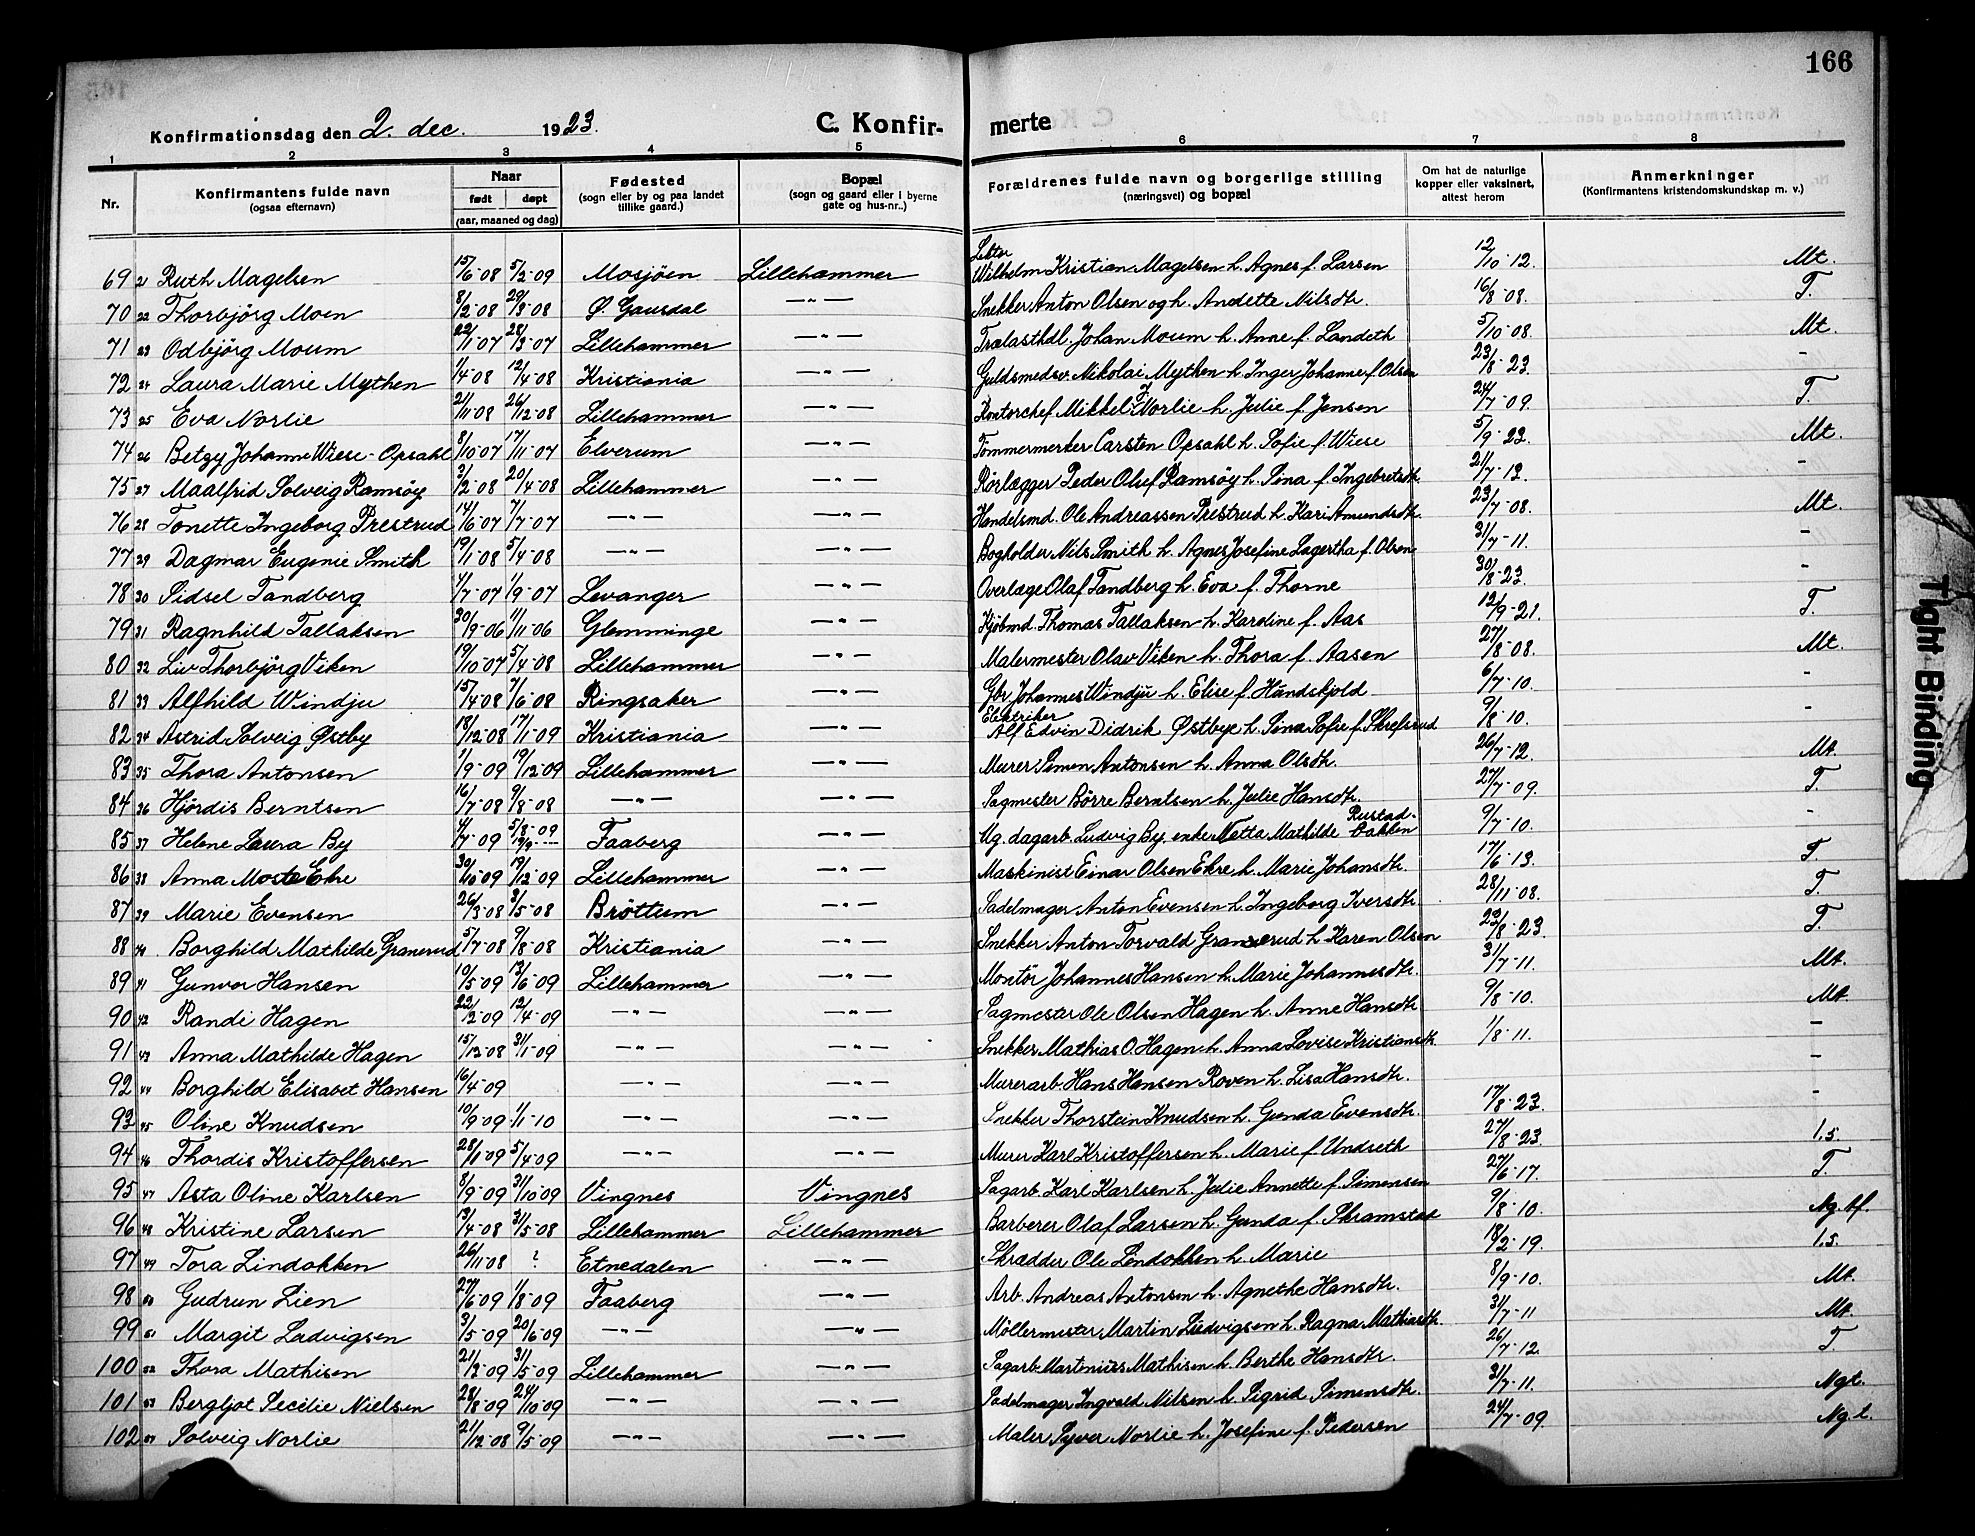 166
Konfirmationsdag den 2. dec. 1923.
C. Konfir-merte
1 2 3 4 5 6 7 8
Nr. | Konfirmantens fulde navn (ogsaa efternavn) | Naar født døpt (aar, maaned og dag) | Fødested (sogn eller by og paa landet tillike gaard.) | Bopæl (sogn og gaard eller i byerne gate og hus-nr..) | Forældrenes fulde navn og borgerlige stilling (næringsvei) og bopæl | Om hat de naturlige kopper eller vaksinert, attest herom | Anmerkninger (Konfirmantens kristendomskundskap m. v.)
69 21 Ruth Magelsen 15/6-08 5/2-09 Mosjöen Lillehammer Lektor Wilhelm Kristian Magelsen h. Agnes f. Larsen 12/10-12. Mt.
70 22 Thorbjörg Moen 8/2-08 29/3-08 Ø. Gausdal —"— Snekker Anton Olsen og h. Andette Nilsdtr. 16/8-08. T.
71 23 Odbjörg Moum 22/1-07 28/3-07 Lillehammer —"— Trælasthdl. Johan Moum h. Anne f. Landeth 5/10-08. Mt.
72 24 Laura Marie Mythen 1/4-08 12/4-08 Kristiania —"— Guldsmedsv. Nikolai Mythen h. Inger Johanne f. Olsen 23/8-23. -
73 25 Eva Norlie 21/11-08 26/12-08 Lillehammer —"— Kontorchef Mikkel J. Norlie h. Julie f. Jensen 24/7-09. T.
74 26 Betzy Johanne Wiese-Opsahl 8/10-07 17/11-07 Elverum —"— Tömmermerker Carsten Opsahl h. Sofie f. Wiese 5/9-22. Mt.
75 27 Maalfrid Solveig Ramsöy 3/2-08 20/4-08 Lillehammer —"— Rörlægger Peder Oluf Ramsöy h. Sina f. Ingebretsdtr. 21/7-13. -
76 28 Tonette Ingeborg Prestrud 14/6-07 7/7-07 —"— —"— Handelsmd. Ole Andreassen Prestrud h. Kari Amundsdtr. 23/7-08. Mt.
77 29 Dagmar Eugenie Smith 19/1-08 5/4-08 —"— —"— Bogholder Nils Smith h. Agnes Josefine Lagertha f. Olsen 31/7-11. -
78 30 Sidsel Tandberg 4/7-07 1/9-07 Levanger —"— Overlæge Olaf Tandberg h. Eva f. Thorne 30/8-23. -
79 31 Ragnhild Tallaksen 30/9-06 11/11-06 Glemminge —"— Kjöbmd. Thomas Tallaksen h. Karoline f. Aas 12/9-21. T.
80 32 Liv Thorbjörg Viken 19/10-07 5/4-08 Lillehammer —"— Malermester Olav Viken h. Thora f. Aasen 27/8-08. Mt.
81 33 Alfhild Windju 15/4-08 7/6-08 Ringsaker —"— Gbr. Johannes Windju h. Elise f. Hundskjold 6/7-10. -
82 34 Astrid Solveig Østby 18/12-08 17/1-09 Kristiania —"— Elektriker Alf Edvin Didrik Østbye h. Sina Sofie f. Skrefsrud 9/8-10. -
83 35 Thora Antonsen 1/9-09 19/12-09 Lillehammer —"— Murer Simen Antonsen h. Anna Olsdtr. 26/7-12. Mt.
84 36 Hjördis Berntsen 16/7-08 9/8-08 —"— —"— Sagmester Börre Berntsen h. Julie Hansdtr. 27/7-09. T.
85 37 Helene Laura By 4/7-09 5/8-09 19/9 -- Faaberg —"— Ug. dagarb. Ludvig By, enke Netta Mathilde Rustad-bakken 9/7-10. -
86 38 Anna Ekre 30/10-09 19/12-09 Lillehammer —"— Maskinist Einar Olsen Ekre h. Marie Johansdtr. 17/6-13. T.
87 39 Marie Evensen 26/3-08 3/5-08 Bröttum —"— Sadelmager Anton Evensen h. Ingeborg Iversdtr. 28/11-08. T.
88 40 Borghild Mathilde Granerud 5/7-08 9/8-08 Kristiania —"— Snekker Anton Torvald Granerud h. Karen Olsen 23/8-23. T.
89 41 Gunvor Hansen 10/5-09 13/6-09 Lillehammer —"— Montör Johannes Hansen h. Marie Johannesdtr. 31/7-11. Mt.
90 42 Randi Hagen 22/2-09 12/4-09 —"— —"— Sagmester Ole Olsen Hagen h. Anne Hansdtr. 9/8-10. Mt.
91 43 Anna Mathilde Hagen 15/12-08 31/1-09 —"— —"— Snekker Mathias O. Hagen h. Anna Lovise Kristiansdtr. 1/8-11. -
92 44 Borghild Elisabet Hansen 16/4-09 —"— —"— Murerarb. Hans Hansen Roven h. Lisa Hansdtr. -
93 45 Oline Knudsen 10/9-09 1/1-10 —"— —"— Snekker Thorstein Knudsen h. Gunda Evensdtr. 17/8-23. -
94 46 Thordis Kristoffersen 28/1-09 5/4-09 —"— —"— Murer Karl Kristoffersen h. Marie f. Undseth 27/8-23. 1.5.
95 47 Asta Oline Karlsen 8/9-09 31/10-09 Vingnes Vingnes Sagarb. Karl Karlsen h. Julie Annette f. Simensen 27/6-17. T
96 48 Kristine Larsen 13/4-08 31/5-08 Lillehammer Lillehammer Barberer Olaf Larsen h. Gunda f. Skramstad 9/8-10.
97 49 Tora Lindokken 26/11-08 ? Etnedalen —"— Skrædder Ole Lindokken h. Marie 18/2-19. 1.5.
98 50 Gudrun Lien 27/6-09 1/8-09 Faaberg —"— Arb. Andreas Antonsen h. Agnethe Hansdtr. 8/9-10. Mt.
99 51 Margit Ludvigsen 3/5-09 20/6-09 —"— —"— Möllermester Martin Ludvigsen h. Ragna Mathiasdtr. 31/7-11 Mt.
100 52 Thora Mathisen 21/3-09 31/5-09 Lillehammer —"— Sagarb. Martinius Mathisen h. Berthe Hansdtr. 26/7-12. T
101 53 Bergljot Secilie Nielsen 28/8-09 24/10-09 —"— —"— Sadelmager Ingvald Nilsen h. Sigrid Simensdtr. 31/7-11. Ngt.
102 54 Solveig Norlie 21/12-08 9/5-09 —"— —"— Maler Syver Norlie h. Josefine f. Pedersen 24/7-09. Ng.t.
Tight Binding